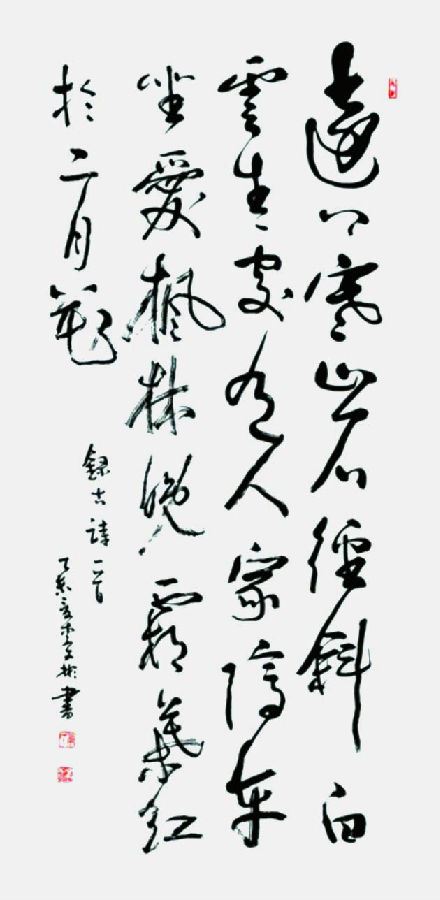 遠上寒山石徑斜白
雲生處有人家停車
坐愛楓林晚霜葉紅
於二月花
錄古詩一首
書